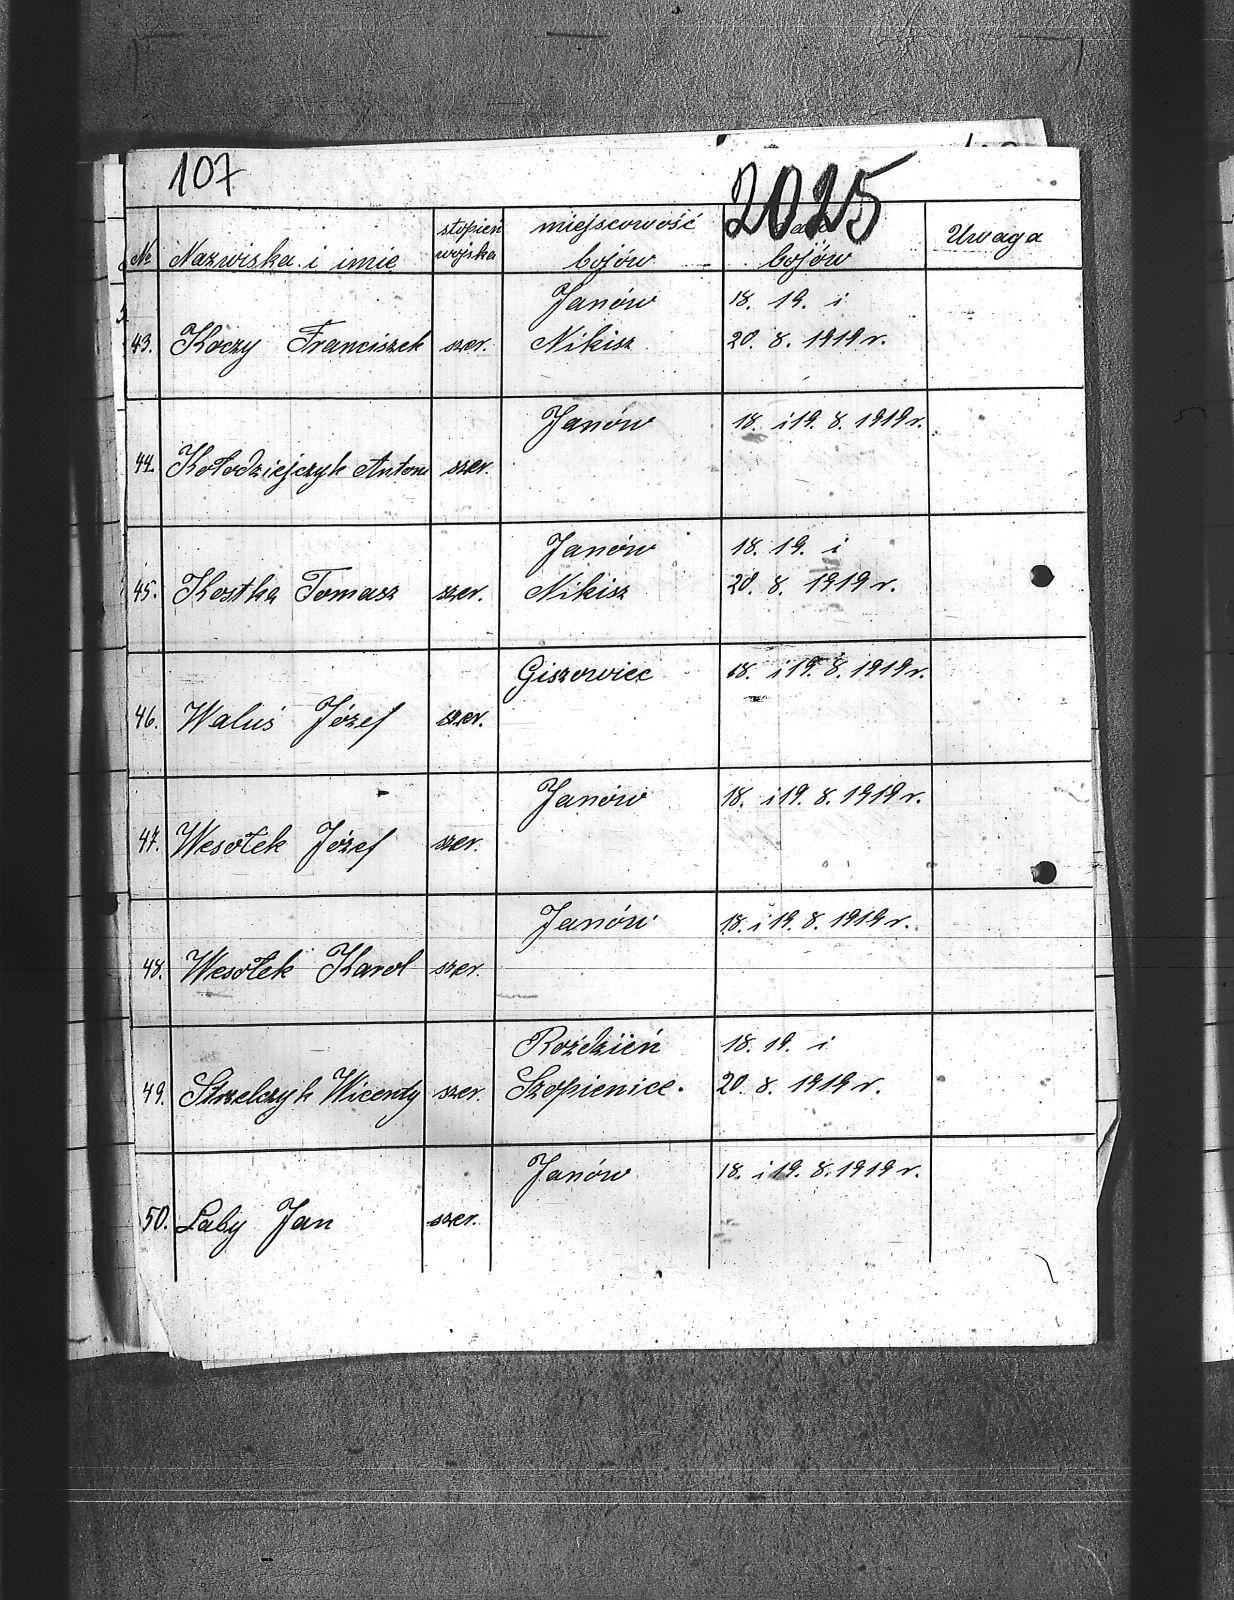 107
2025
№ Nazwiska i imie stopień wojska miejscowość bojów bojów Uwaga
Janów 18. 19. i
43. Koczy Franciszek szer. Nikisz 20. 8. 1919 r.
Janów 18. i 19. 8. 1919 r.
44. Kołodziejczyk Antoni szer.
Janów 18. 19. i
45. Kostka Tomasz szer. Nikisz 20. 8. 1919 r.
Giszowiec 18. i 19. 8. 1919 r.
46. Waluś Józef szer.
Janów 18. i 19. 8. 1919 r.
47. Wesołek Józef szer.
Janów 18. i 19. 8. 1919 r.
48. Wesołek Karol szer.
Roździeń 18. 19. i
49. Strzelczyk Wicenty szer. Szopienice. 20. 8. 1919 r.
Janów 18. i 19. 8. 1919 r.
50. Laby Jan szer.